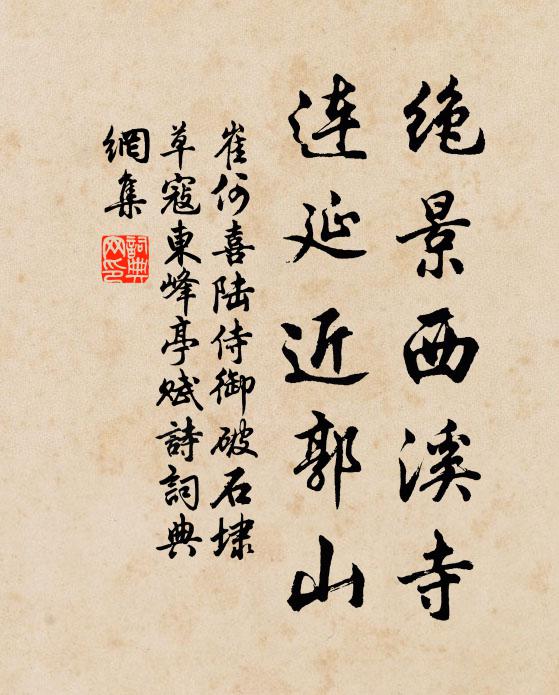 绝景西溪寺
连延近郭山
崔何喜陆侍御破石埭
草寇東峰亭赋詩詞典
網集
詞典
网印